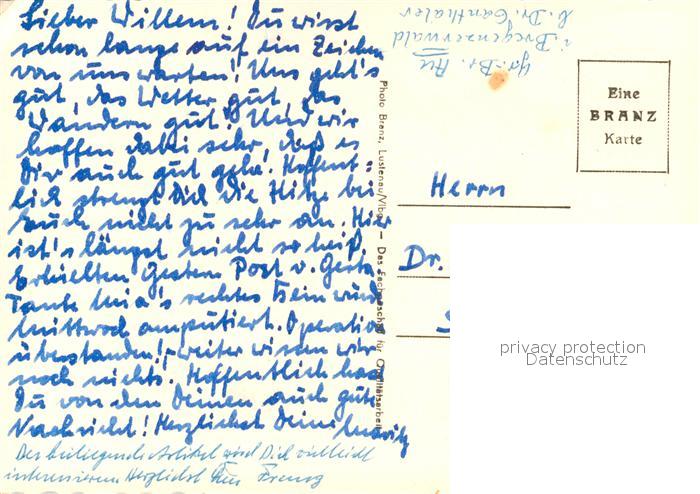 Lieber Willem! Du wirst
schon lange auf ein Zeichen
von uns warten! Uns geht's
gut, das Wetter gut, das
Wandern gut! Und wir
hoffen dabei sehr, daß es
Dir auch gut gehe. Hoffent-
lich strengt Dich die Hitze bei
Euch nicht zu sehr an. Hier
ist's längst nicht so heiß.
Erhielten gestern Post v. Gerta.
Tante Mia's rechtes Bein wurde
Mittwoch amputiert. Operation
überstanden! weiter wissen wir
noch nichts! Hoffentlich hast
Du von den Deinen auch gute
Nachricht! Herzlichst Deine
Der beiliegende Artikel wird Dich vielleicht
interessieren Herzlichst Franz
Au
i. Bregenzerwald
b. Dr. Ganthaler
Photo Branz, Lustenau/Vlbg. — Das Fachgeschäft für Qualitätsarbeit
Eine
BRANZ
Karte
Herrn
Dr.
privacy protection
Datenschutz